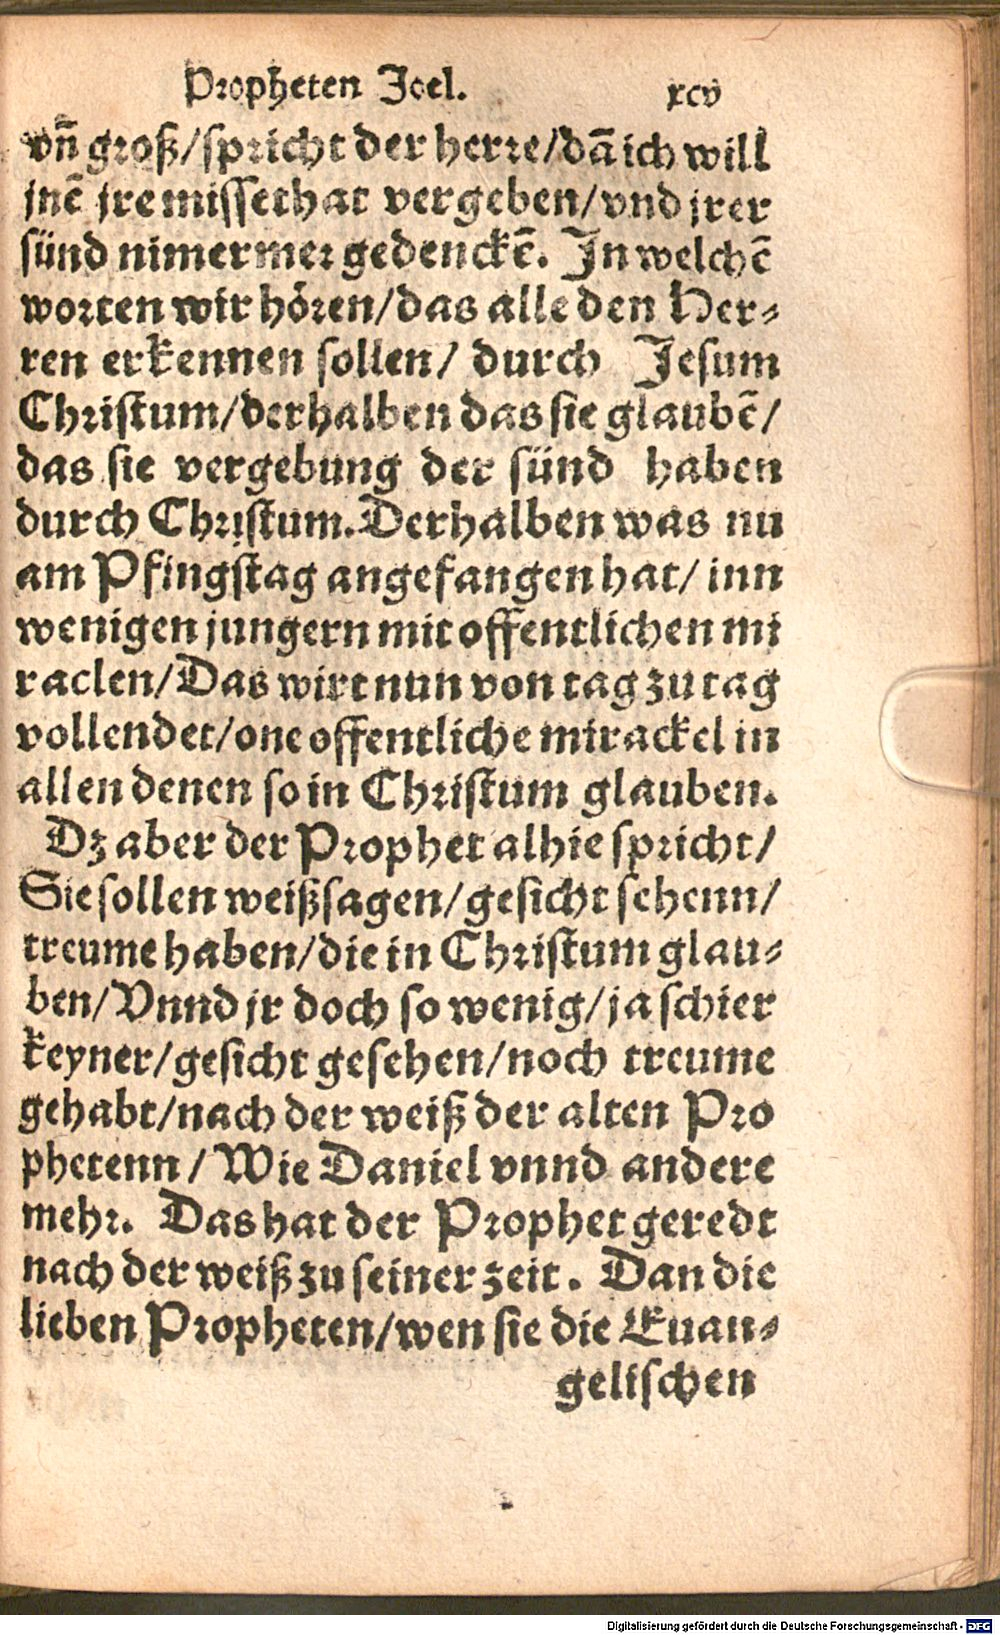 Propheten Joel. xcv
vn̄ groß/spricht der herre/dā ich will
jnē jre missethat vergeben/vnd jrer
sünd nimermer gedenckē. In welchē
worten wir hören/das alle den Her⸗
ren erkennen sollen/ durch Jesum
Christum/derhalben das sie glaubē/
das sie vergebung der sünd haben
durch Christum. Derhalben was nu
am Pfingstag angefangen hat/ inn
wenigen jungern mit offentlichen mi
raclen/Das wirt nun von tag zu tag
vollendet/one offentliche mirackel in
allen denen so in Christum glauben.
Dz aber der Prophet alhie spricht/
Sie sollen weißsagen/gesicht sehenn/
treume haben/die in Christum glau⸗
ben/Vnnd jr doch so wenig/ja schier
keyner/gesicht gesehen/noch treume
gehabt/nach der weiß der alten Pro
phetenn/Wie Daniel vnnd andere
mehr. Das hat der Prophet geredt
nach der weiß zu seiner zeit. Dan die
lieben Propheten/wen sie die Euan⸗
gelischen
Digitalisierung gefördert durch die Deutsche Forschungsgemeinschaft - DFG